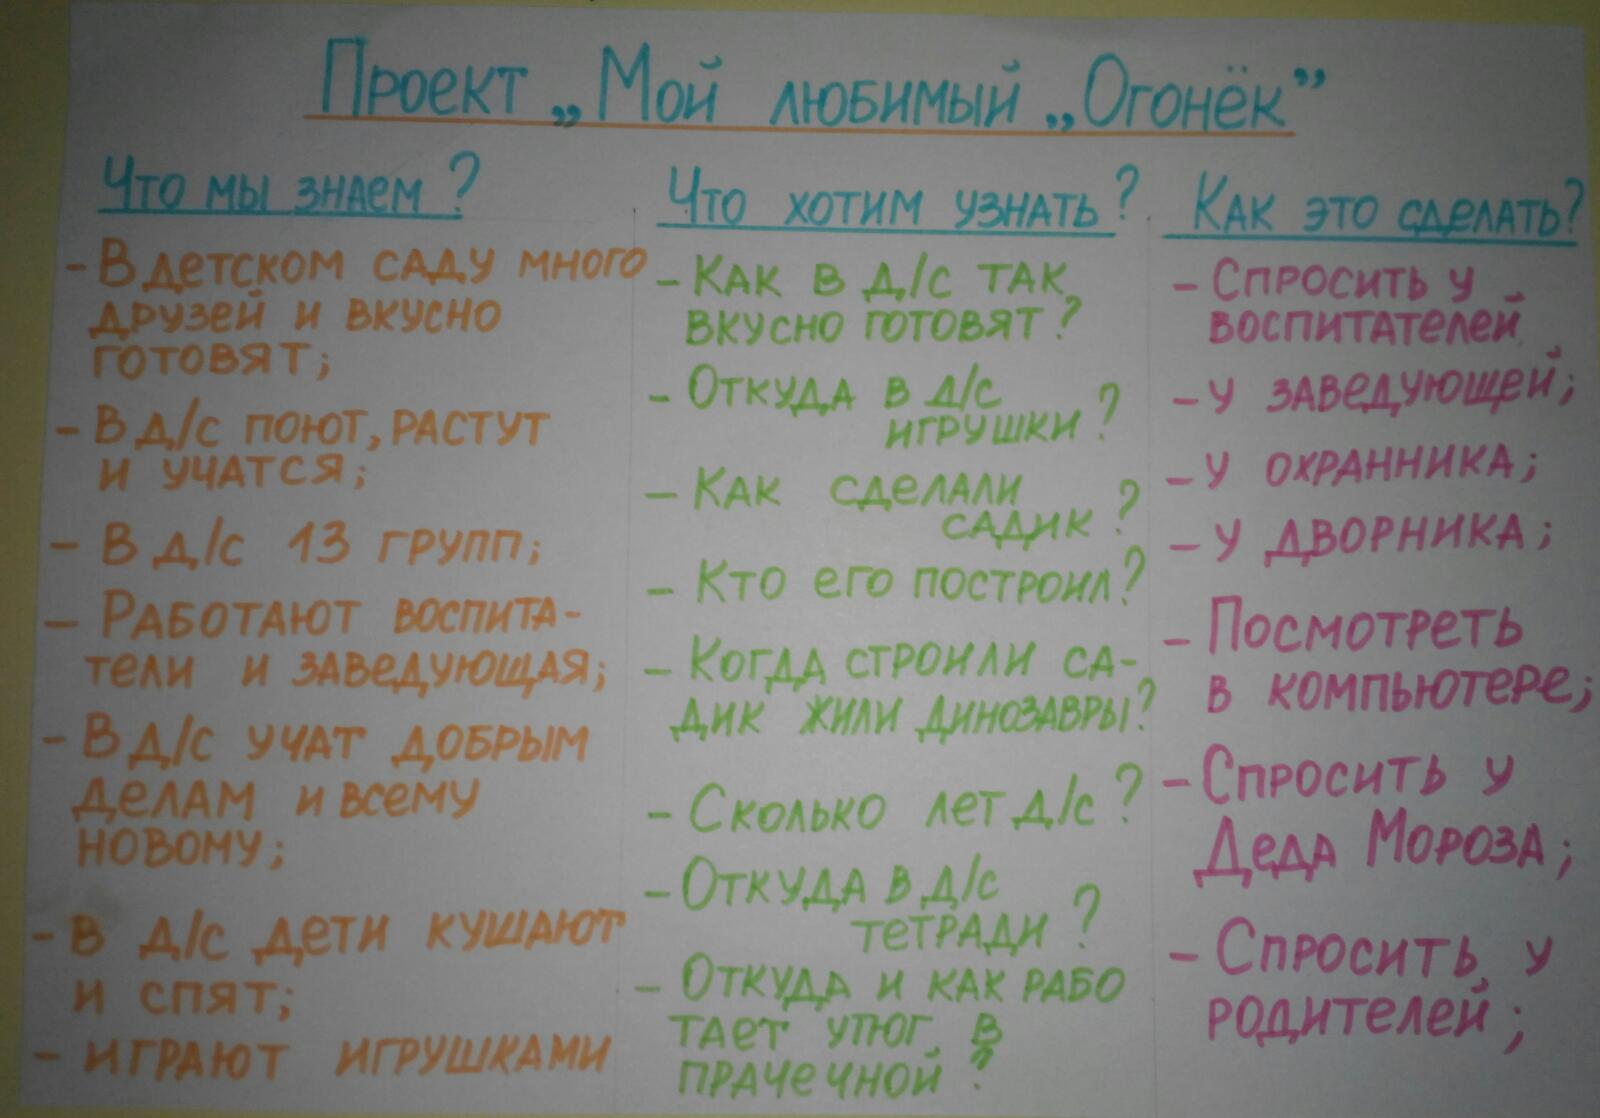 Проект „Мой любимый „Огонёк”
Что мы знаем?
- В детском саду много
друзей и вкусно
готовят;
- В д/с поют, растут
и учатся;
- В д/с 13 групп;
- Работают воспита-
тели и заведующая;
- В д/с учат добрым
делам и всему
новому;
- в д/с дети кушают
и спят;
- играют игрушками
Что хотим узнать?
- Как в д/с так
вкусно готовят?
- Откуда в д/с
игрушки?
- Как сделали
садик?
- Кто его построил?
- Когда строили са-
дик жили динозавры?
- Сколько лет д/с?
- Откуда в д/с
тетради?
- Откуда и как рабо
тает утюг в
прачечной?
Как это сделать?
- Спросить у
воспитателей
- у заведующей;
- у охранника;
- у дворника;
- Посмотреть
в компьютере;
- Спросить у
Деда Мороза;
- Спросить у
родителей;